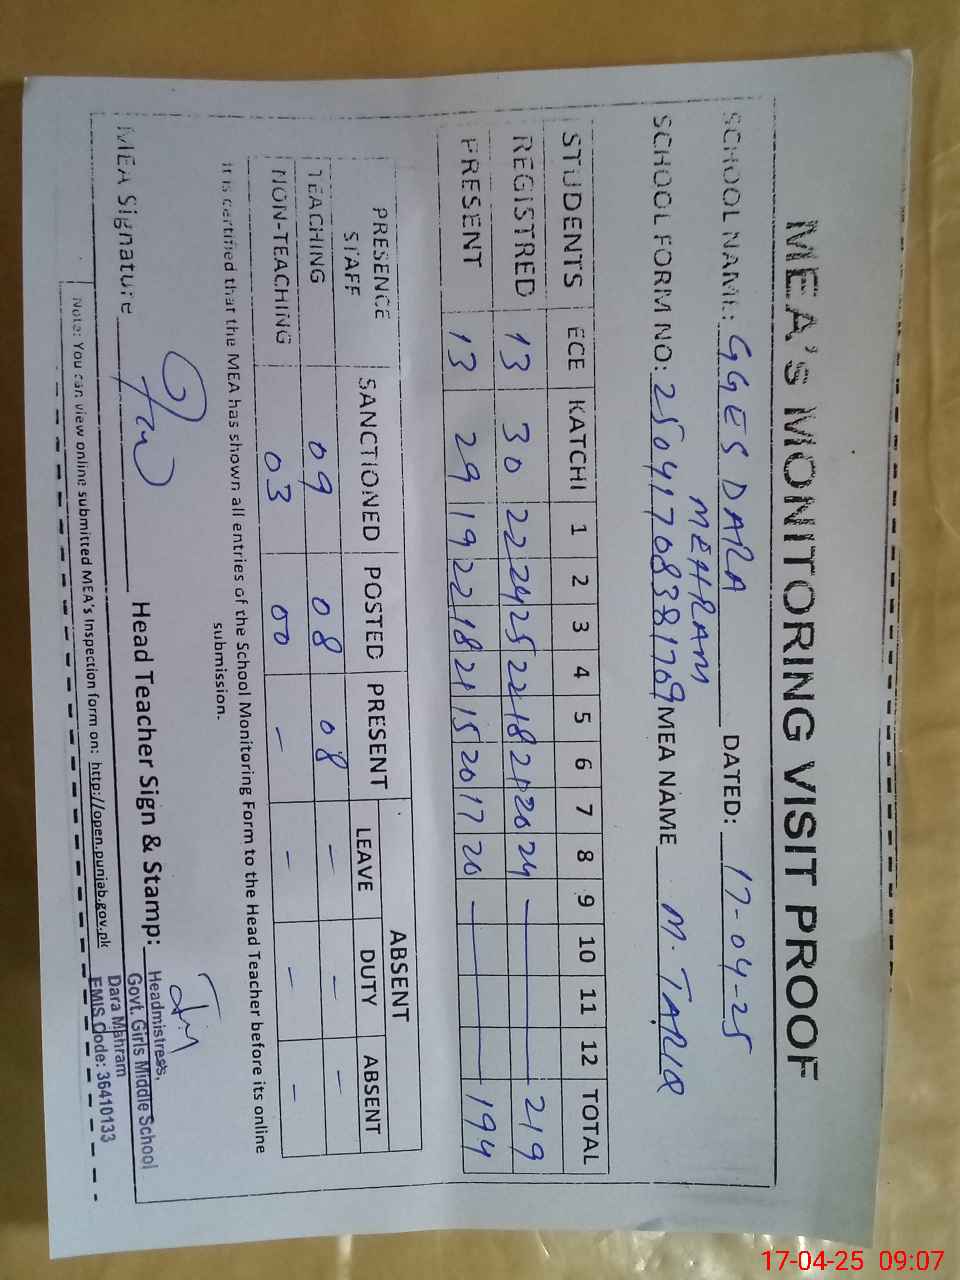 MEA'S MONITORING VISIT PROOF
SCHOOL NAME: GGES DARA MEHRAM DATED: 17-04-25
SCHOOL FORM NO: 25041708381709 MEA NAME M. TARIQ
STUDENTS ECE KATCHI 1 2 3 4 5 6 7 8 9 10 11 12 TOTAL
REGISTRED 13 30 22 24 25 22 18 21 20 24 — 219
PRESENT 13 29 19 22 18 21 15 20 17 20 — 194
PRESENCE STAFF SANCTIONED POSTED PRESENT ABSENT
LEAVE DUTY ABSENT
TEACHING 09 08 08 - - -
NON-TEACHING 03 00 - - - -
It is certified that the MEA has shown all entries of the School Monitoring Form to the Head Teacher before its online
submission.
MEA Signature Head Teacher Sign & Stamp:
Headmistress,
Govt. Girls Middle School
Dara Mahram
EMIS Code: 36410133
Note: You can view online submitted MEA's Inspection form on: http://open.punjab.gov.pk
17-04-25 09:07